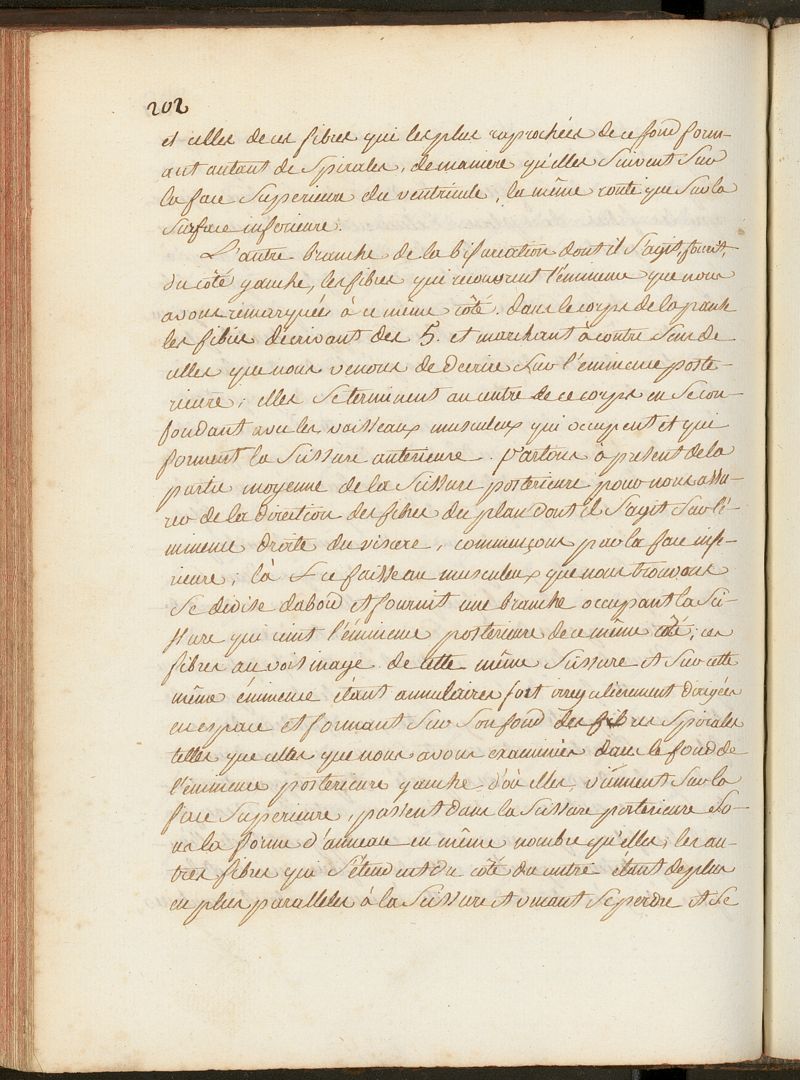 202
et celles de ces fibres qui les plus raprochées de ce fond form-
ant autant de Spirales, de maniere qu'elles Suivent Sur
la face Superieure du ventricule, la même route que Sur la
Surface inferieure.
L'autre branche de la bifurcation dont il S'agit, fournit,
du côté gauche, les fibres qui recouvrent l'éminence que nous
avons remarquée à ce même côté. dans le corps de la panse
les fibres decrivant des S. et marchant à contre Sens de
celles que nous venons de decrire Sur l'éminence poste-
rieure, elles Se terminent au centre de ce corps en Se con-
fondant avec les vaisseaux musculeux qui occupent et qui
forment la Scissure anterieure. Partons a present de la
partie moyenne de la Scissure posterieure pour nous assu-
rer de la direction des fibres du plan dont il S'agit Sur l'é-
minence droite du viscere, commençons par la face infe-
rieure; là ce faisseau musculeux que nous trouvons
Se divise dabord et fournit une branche occupant la Sci-
ssure qui ceint l'éminence posterieure de ce même côté; ces
fibres au voisinage de cette même Scissure et Sur cette
même éminence étant annulaires fort irregulierement dirigées
en espace et formant Sur Son fond des fibres Spirales
telles que celles que nous avons examinées dans le fond de
l'éminence posterieure gauche, d'où elles viennent Sur la
face Superieure, passent dans la Scissure posterieure So-
us la forme d'anneau en même nombre qu'elles; les au-
tres fibres qui S'étendent du côté du centre étant de plus
en plus paralleles à la Scissure et venant Se perdre et Se